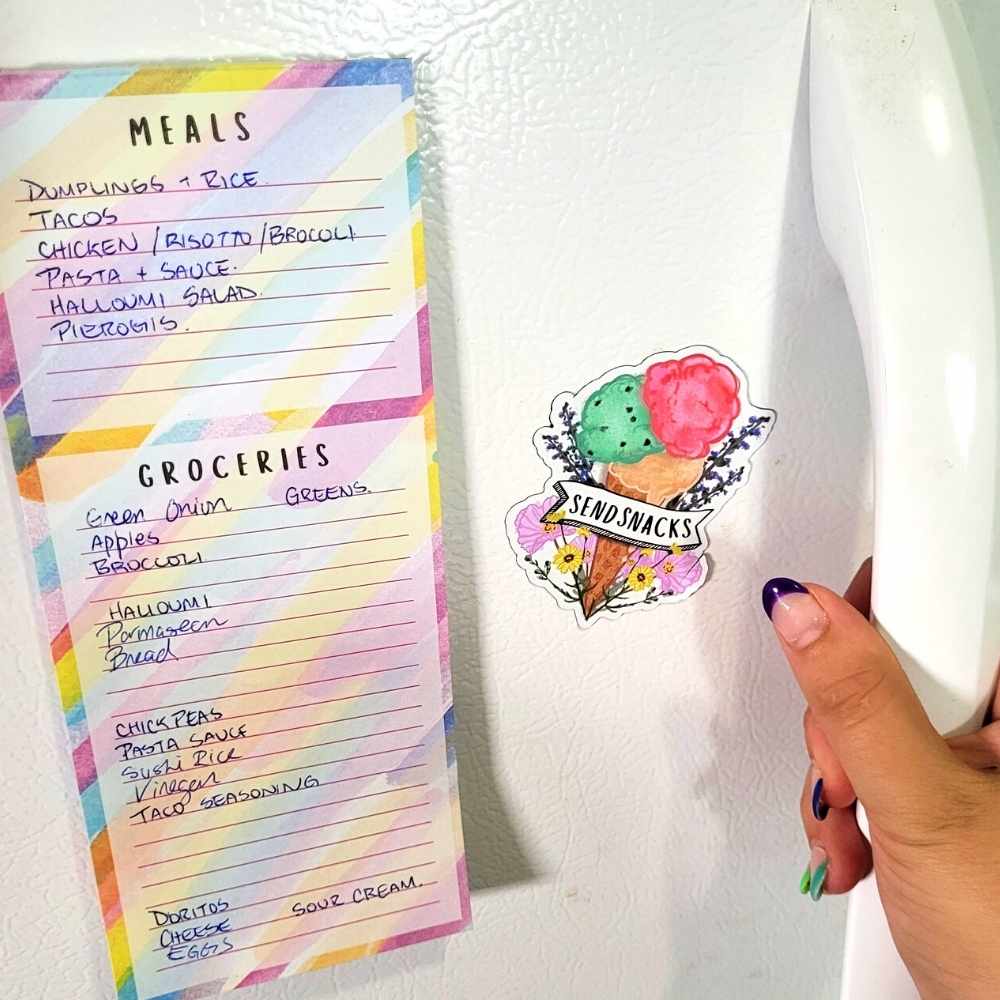 MEALS
DUMPLINGS + RICE.
TACOS
CHICKEN / RISOTTO / BROCOLI
PASTA + SAUCE.
HALLOUMI SALAD.
PIEROGIS.
GROCERIES
Green Onion GREENS.
Apples
BROCCOLI
HALLOUMI
Parmasean
Bread
CHICKPEAS
PASTA SAUCE
Sushi Rice
Vinegar
TACO SEASONING
DORITOS SOUR CREAM.
CHEESE
EGGS
SEND SNACKS